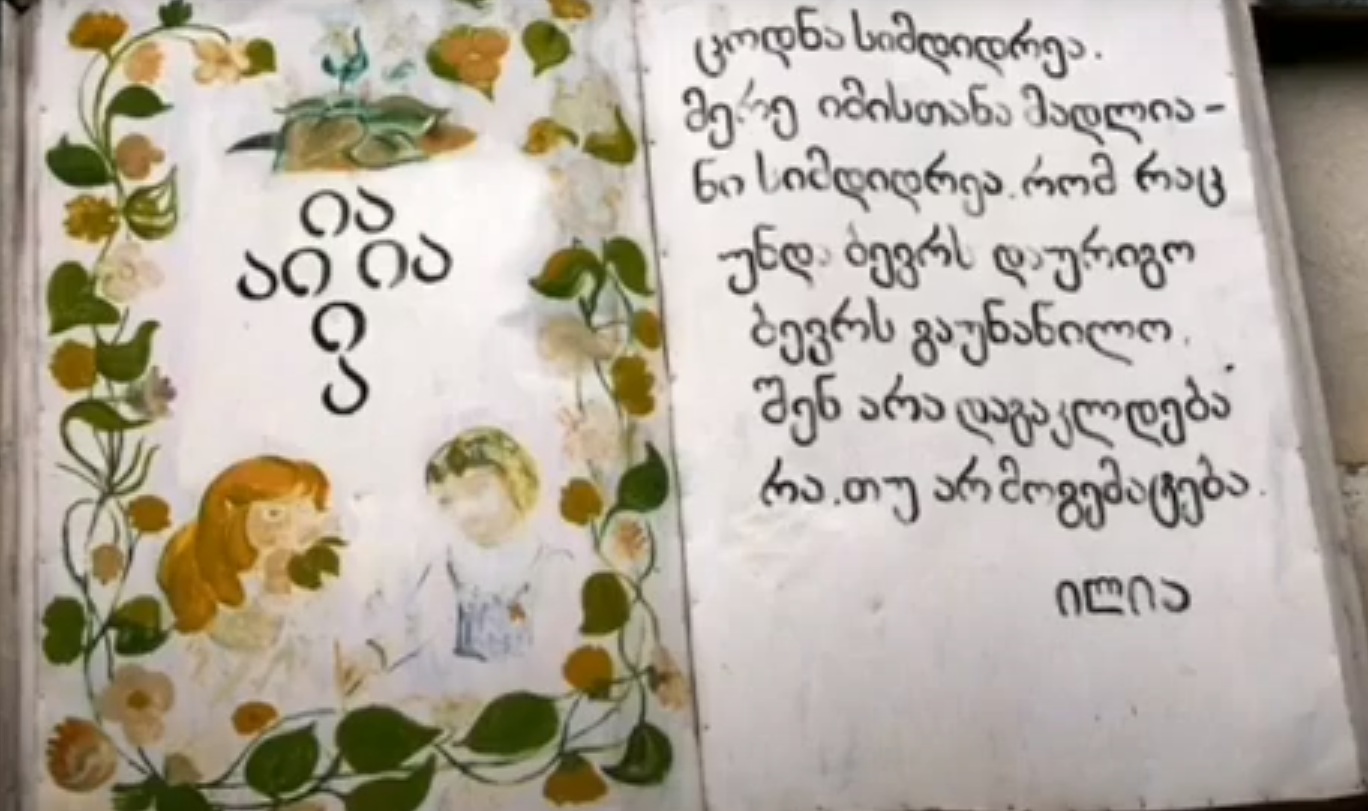 ია
აი ია
ი
ა
ცოდნა სიმდიდრეა.
მერე იმისთანა მადლია-
ნი სიმდიდრეა. რომ რაც
უნდა ბევრს დაურიგო
ბევრს გაუნაწილო.
შენ არა დაგაკლდება
რა. თუ არ მოგემატება.
ილია